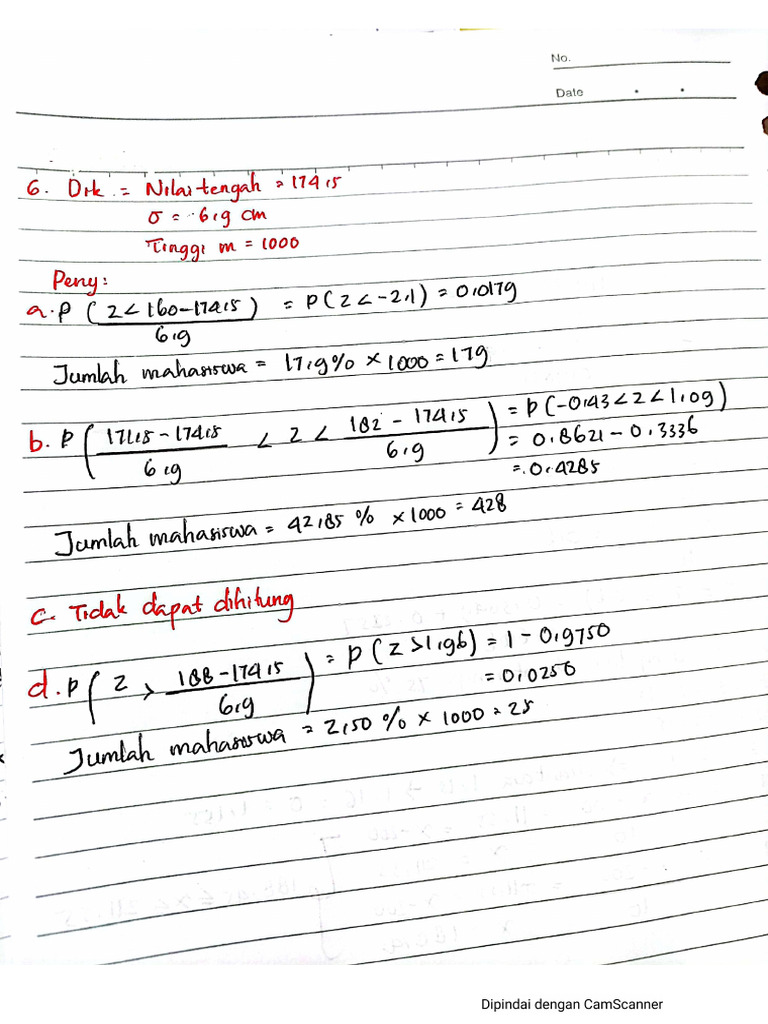 No.
Date
6. Dik = Nilai tengah = 174,5
σ = 6,9 cm
Tinggi m = 1000
Peny:
a. P (z < 160 - 174,5 / 6,9) = P(z < -2,1) = 0,0179
Jumlah mahasiswa = 17,9% × 1000 = 179
b. P (171,5 - 174,5 / 6,9 < z < 182 - 174,5 / 6,9) = P(-0,43 < z < 1,09)
= 0,8621 - 0,3336
= 0,4285
Jumlah mahasiswa = 42,85 % × 1000 = 428
c. Tidak dapat dihitung
d. P (z > 188 - 174,5 / 6,9) = P(z > 1,96) = 1 - 0,9750
= 0,0250
Jumlah mahasiswa = 2,50 % × 1000 = 25
Dipindai dengan CamScanner